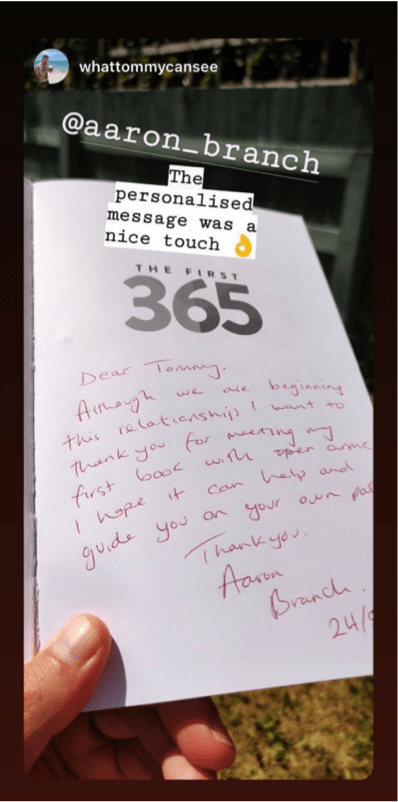 whattommycansee
@aaron_branch
The
personalised
message was a
nice touch 👌
THE FIRST
365
Dear Tommy.
Although we are beginning
this relationship I want to
thank you for meeting my
first book with open arms
I hope it can help and
guide you on your own
Thank you.
Aaron
Branch.
24/